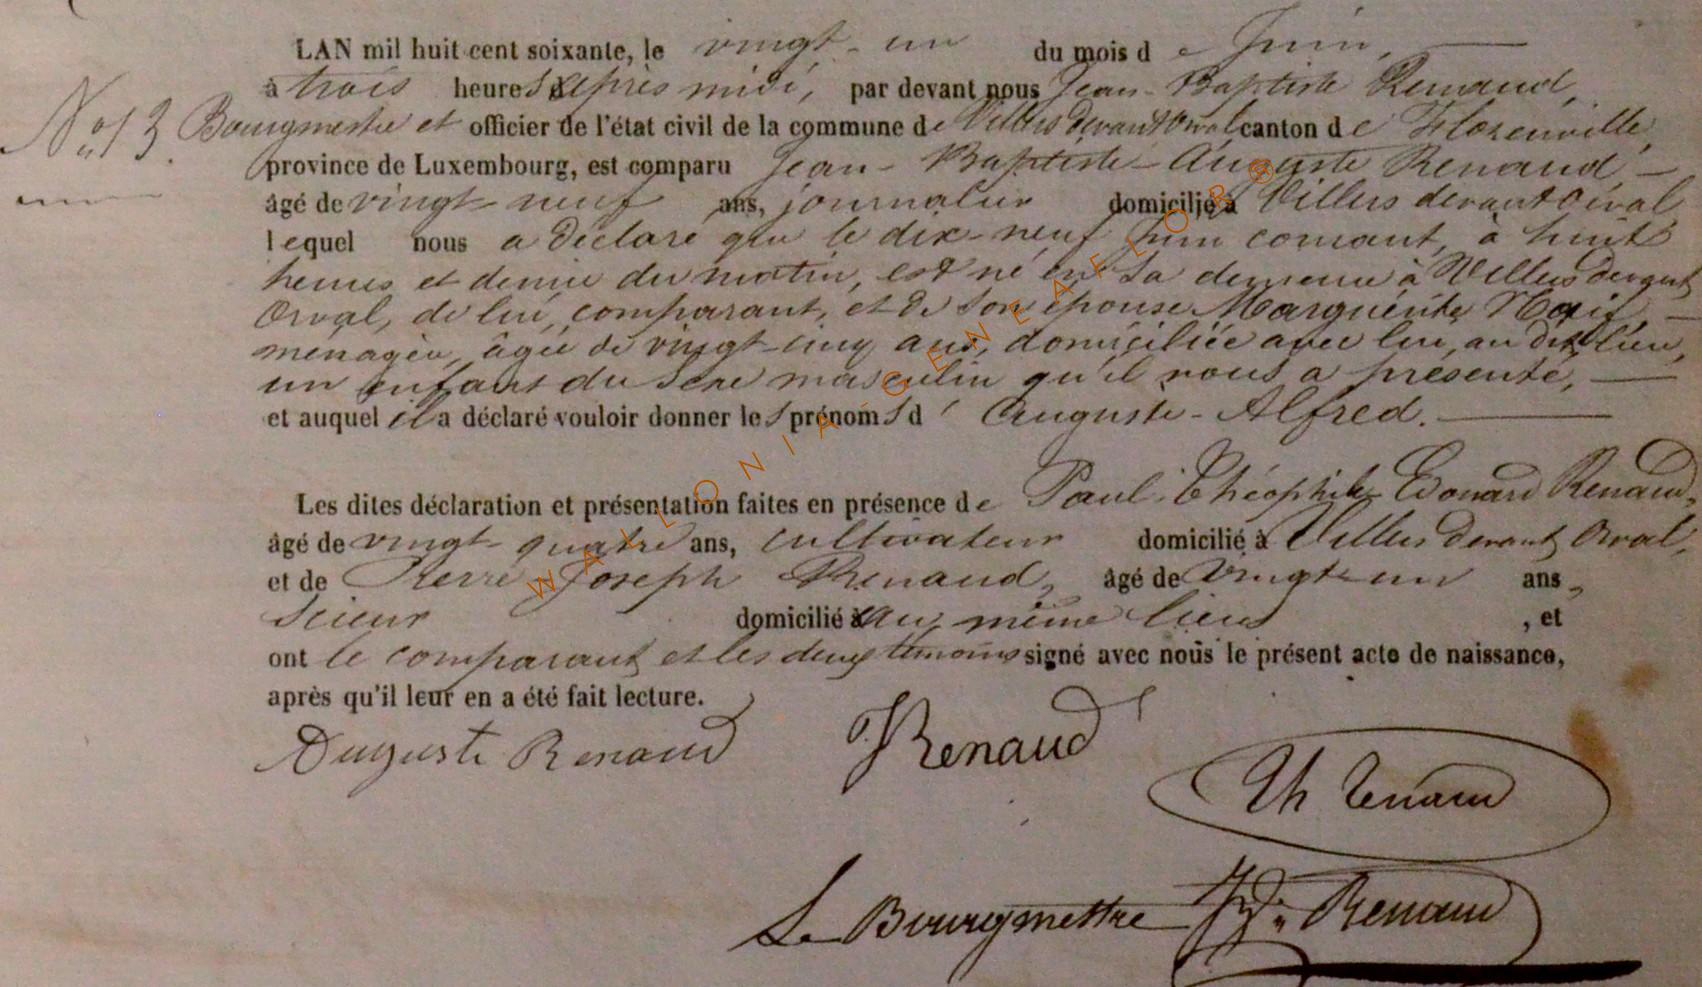 LAN mil huit cent soixante, le vingt-un du mois de Juin,
à trois heures après midi, par devant nous Jean-Baptiste Renaud,
N° 13. Bourgmestre et officier de l'état civil de la commune de Villers devant Orval canton de Florenville,
province de Luxembourg, est comparu Jean-Baptiste-Auguste Renaud
âgé de vingt-neuf ans, journalier domicilié à Villers devant Orval,
lequel nous a déclaré que le dix-neuf Juin courant, à huit
heures et demie du matin, est né en sa demeure à Villers devant
Orval, de lui, comparant, et de son épouse Marguerite
ménagère, âgée de vingt-cinq ans, domiciliée avec lui, au dit lieu,
un enfant du sexe masculin qu'il nous a présenté,
et auquel il a déclaré vouloir donner les prénoms d' Auguste-Alfred.
Les dites déclaration et présentation faites en présence de Paul-Théophile-Edouard Renaud,
âgé de vingt-quatre ans, cultivateur domicilié à Villers devant Orval,
et de Pierre Joseph Renaud, âgé de vingt-un ans,
scieur domicilié au même lieu, et
ont le comparant et les deux témoins signé avec nous le présent acte de naissance,
après qu'il leur en a été fait lecture.
Auguste Renaud Renaud
Th Renaud
Le Bourgmestre Renaud
WALLONIA-GENEAFLOR®